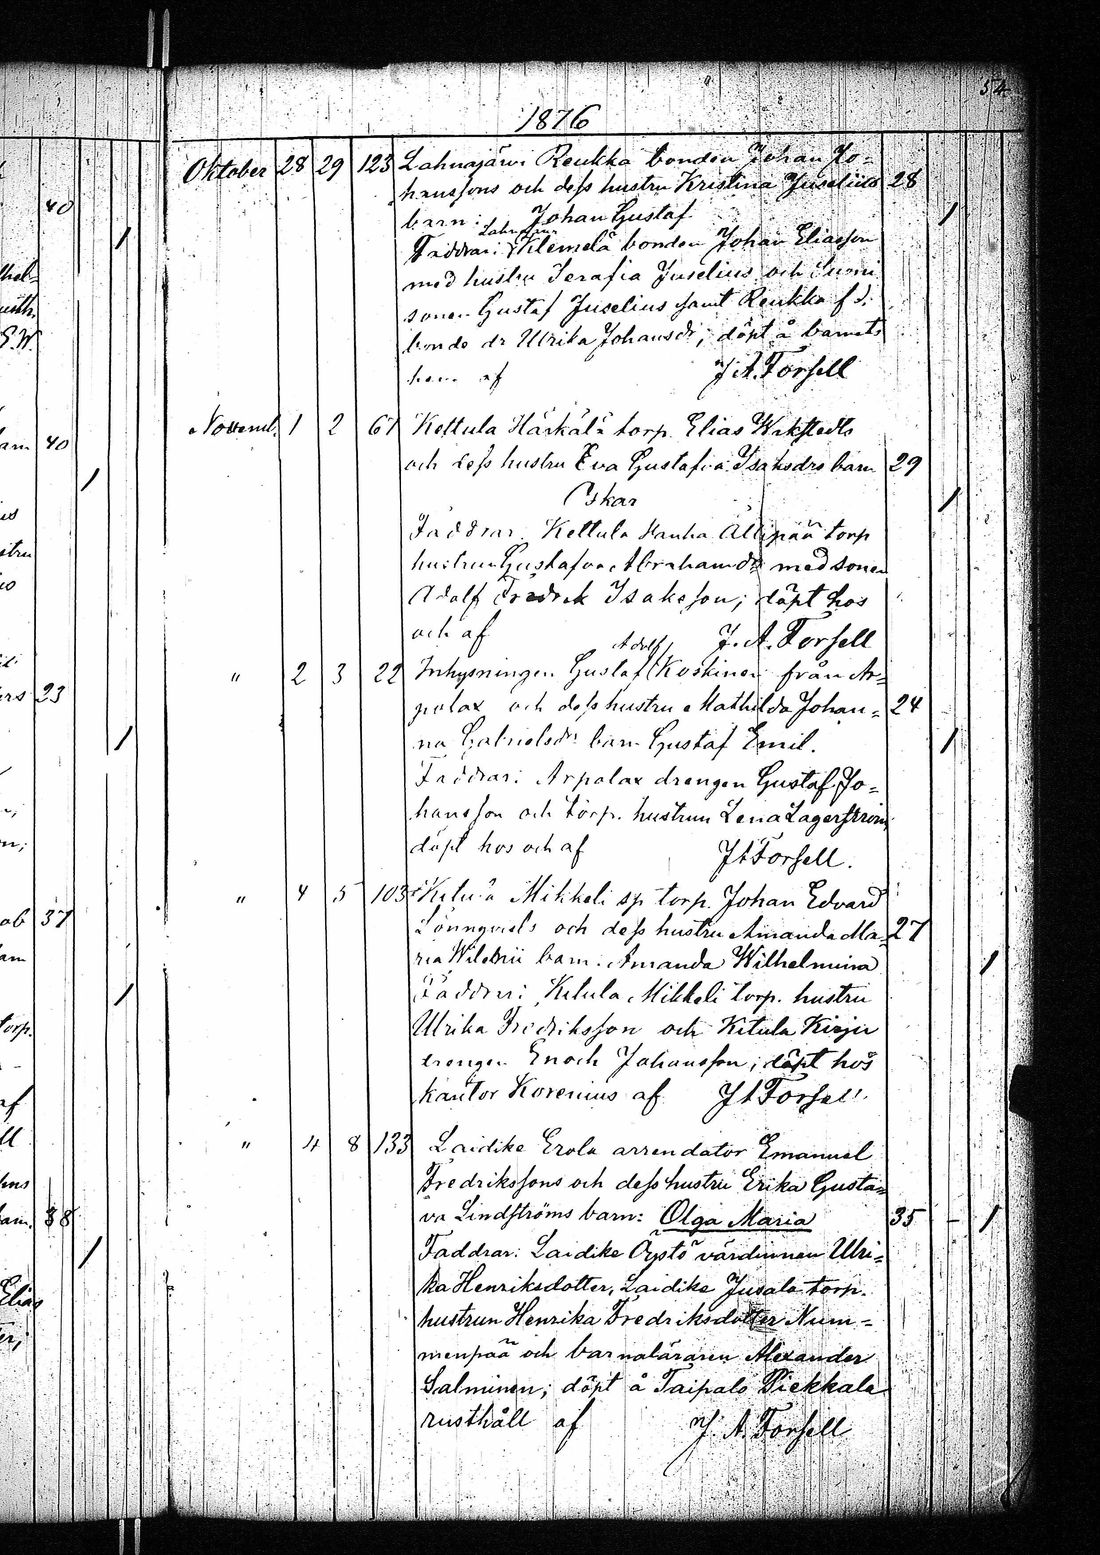 54
1876
Oktober 28 29 123 Lahnajärvi Reukka bonden Johan Jo=
hanssons och dess hustru Kristina Juselius 28
barn: Johan Gustaf 1
Faddrar: Klemelä bonden Johan Eliasson
med hustru Serafia Juselius och
sonen Gustaf Juselius samt Reukka f. d.
bonde dr Ulrika Johansdr; döpt å barnets
hem af J. A. Forsell
Novemb. 1 2 61 Kettula Härkälä torp. Elias Wikstedts
och dess hustru Eva Gustafva Isaksdrs barn 29
Oskar 1
Faddrar: Kettula Ällipää torp
hustrun Gustafva Abrahamsdr med sonen
Adolf Fredrik Isaksson; döpt hos
och af J. A. Forsell
" 2 3 22 Inhysningen Gustaf Adolf Koskinen från Ar=
polax och dess hustru Mathilda Johan= 24
na Gabrielsdr barn Gustaf Emil. 1
Faddrar: Arpolax drengen Gustaf Jo=
hansson och torp. hustrun Lena Lagerström,
döpt hos och af J A Forsell.
" 4 5 103 Kitula Mikkeli sp torp. Johan Edvard
Lönnqvists och dess hustru Amanda Ma= 27
ria barn: Amanda Wilhelmina 1
Faddrar: Kitula Mikkeli torp. hustru
Ulrika Fredriksson och Kitula
drengen Enoch Johansson; döpt hos
kantor Korenius af J A Forsell.
" 4 8 133 Laidike Erola arrendator Emanuel
Fredrikssons och dess hustru Erika Gusta=
va Lindströms barn: Olga Maria 35 – 1
Faddrar: Laidike Öystö värdinnan Ulri=
ka Henriksdotter, Laidike Jusala torp.
hustrun Henrika Fredriksdotter Num=
menpää och barnaläraren Alexander
Salminen; döpt å Taipale Piekkala
rusthåll af J. A. Forsell
40
1
40
1
23
1
ob 37
1
torp.
38
1
Elias